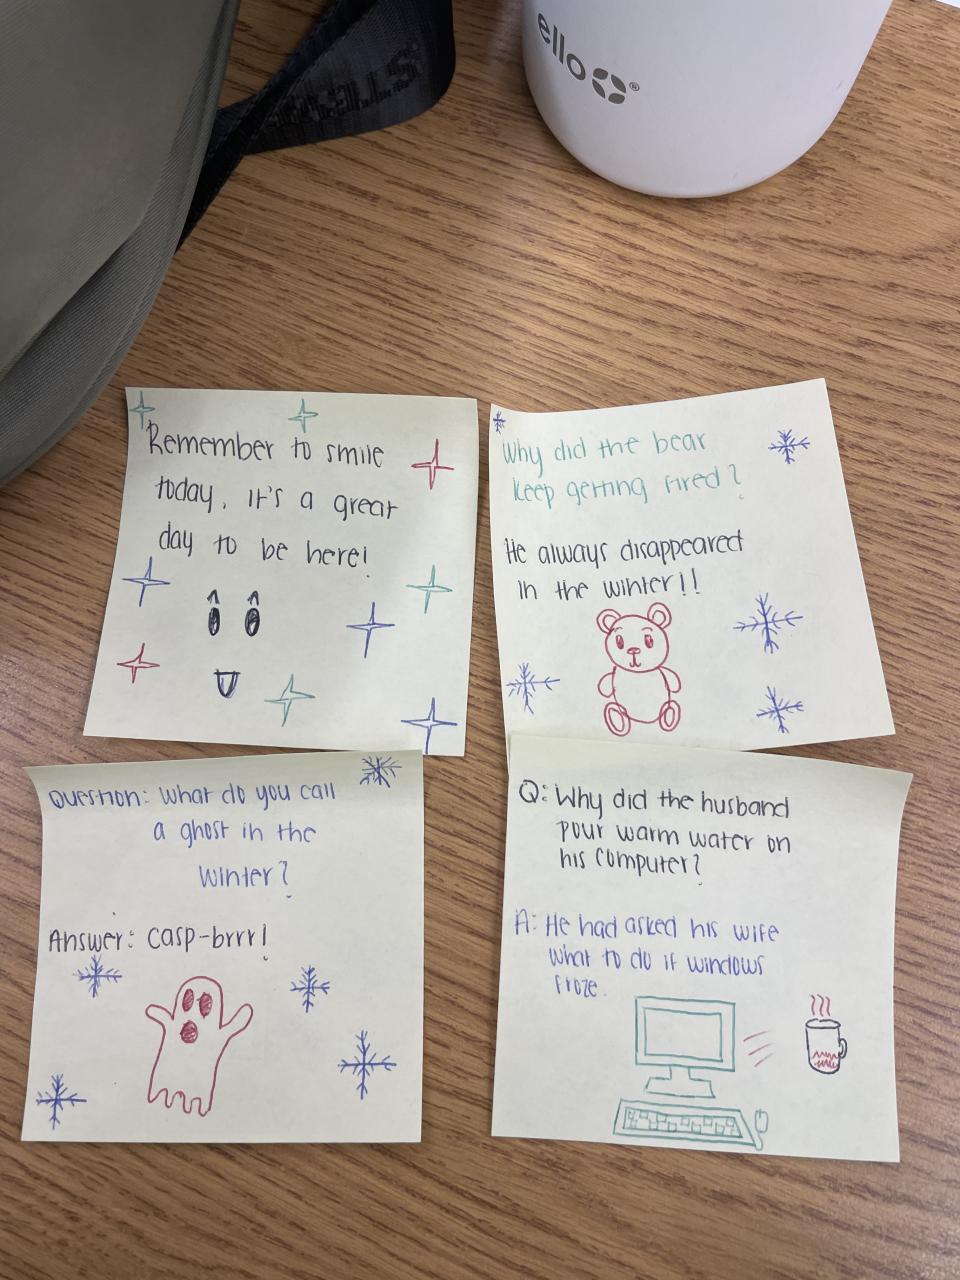 ello®
Remember to smile
today, it's a great
day to be here!
Why did the bear
keep getting fired?
He always disappeared
in the winter!!
Question: What do you call
a ghost in the
winter?
Answer: casp-brrr!
Q: Why did the husband
pour warm water on
his computer?
A: He had asked his wife
what to do if windows
froze.